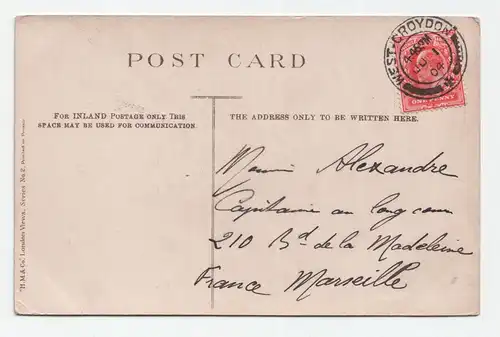 POST CARD
FOR INLAND POSTAGE ONLY THIS
SPACE MAY BE USED FOR COMMUNICATION.
THE ADDRESS ONLY TO BE WRITTEN HERE.
WEST-CROYDON
04
ONE PENNY
Alexandre
Capitaine au long cour
210 Bd de la Madeleine
France Marseille
H.M.& Co. London Views, Series No. 2.